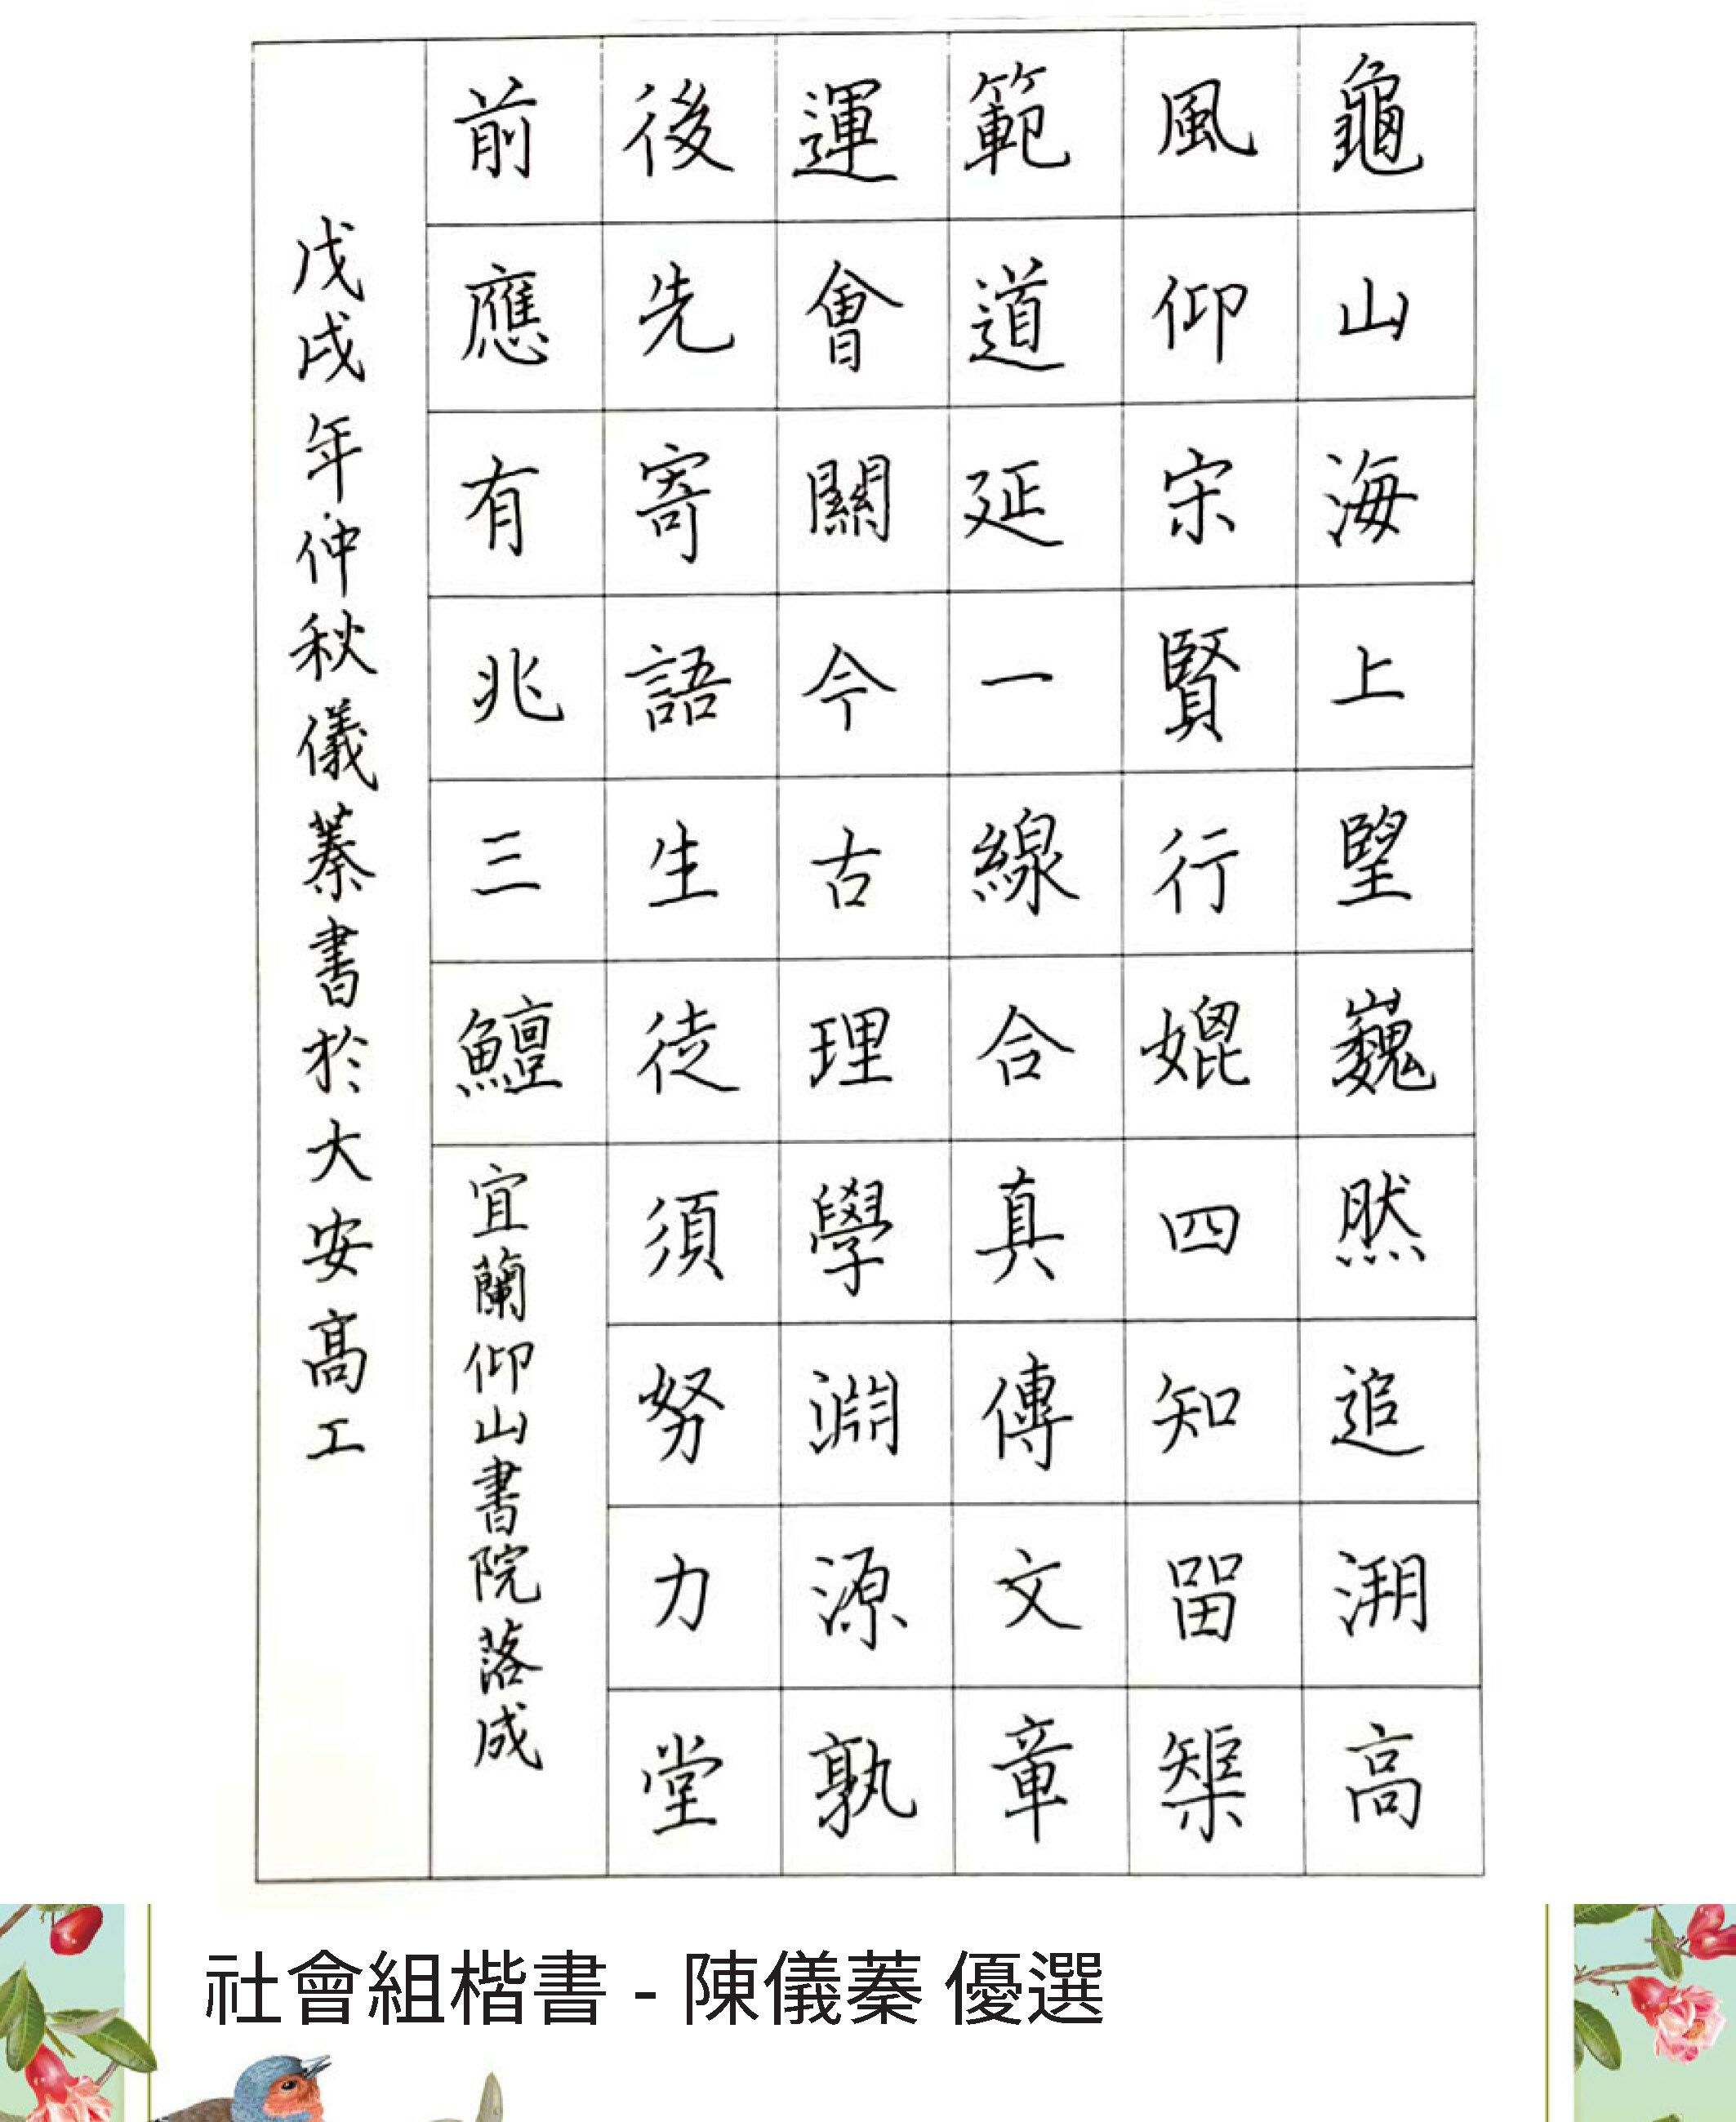 龜山海上朢巍然追溯高
風仰宋賢行媲四知留榘
範道延一線合真傳文章
運會關今古理學淵源孰
後先寄語生徒須努力堂
前應有兆三鱣
宜蘭仰山書院落成
戊戌年仲秋儀蓁書於大安高工
社會組楷書 - 陳儀蓁 優選